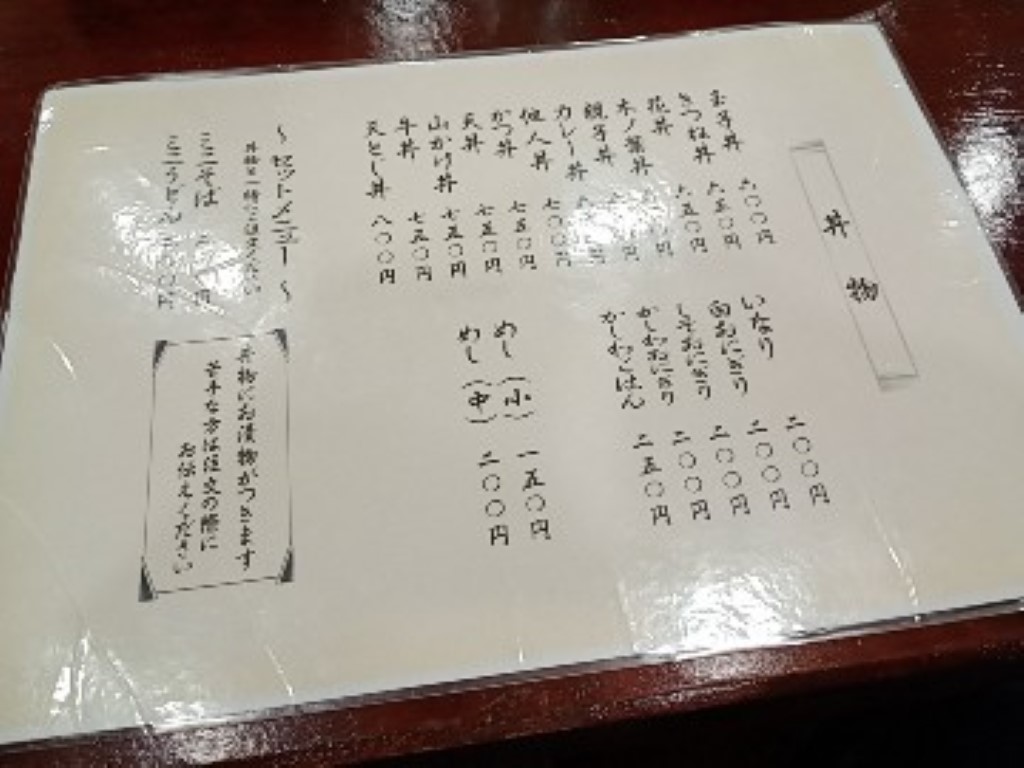 丼物
玉子丼 六〇〇円
きつね丼 六五〇円
花丼 六五〇円
木ノ葉丼
親子丼
カレー丼
他人丼 七〇〇円
かつ丼 七五〇円
天丼 七五〇円
山かけ丼 七五〇円
牛丼 七五〇円
天とじ丼 八〇〇円
いなり 二〇〇円
白おにぎり 二〇〇円
しそおにぎり 二〇〇円
かしわおにぎり 二〇〇円
かしわごはん 二五〇円
めし(小) 一五〇円
めし(中) 二〇〇円
～セットメニュー～
丼物と一緒にご注文ください
ミニそば
ミニうどん
丼物にお漬物がつきます
苦手な方は注文の際に
お伝えください